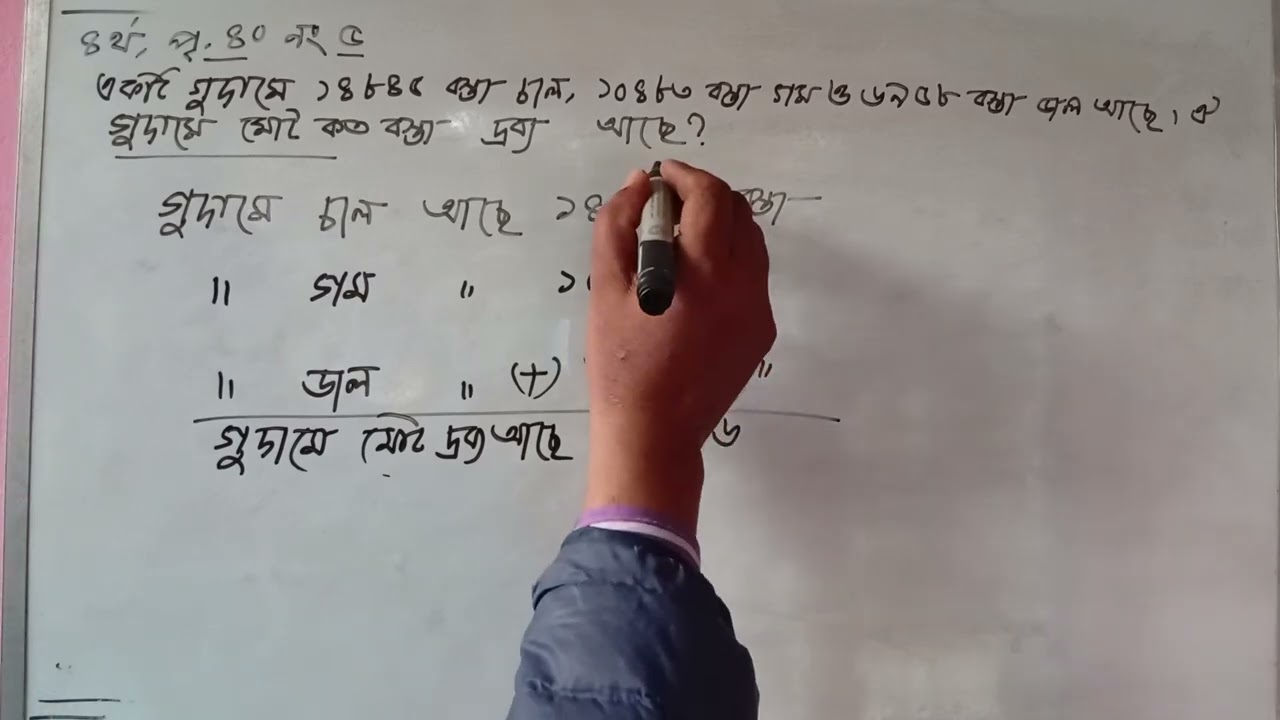 ৪র্থ, পৃ. ৪০ নং ৫
একটি গুদামে ১৪৮৪৫ বস্তা চাল, ১০৪৮৩ বস্তা গম ও ৬৯৫৮ বস্তা ডাল আছে। ঐ
গুদামে মোট কত বস্তা দ্রব্য আছে?
গুদামে চাল আছে ১৪
" গম " ১
" ডাল " (+) "
গুদামে মোট দ্রব্য আছে ৬